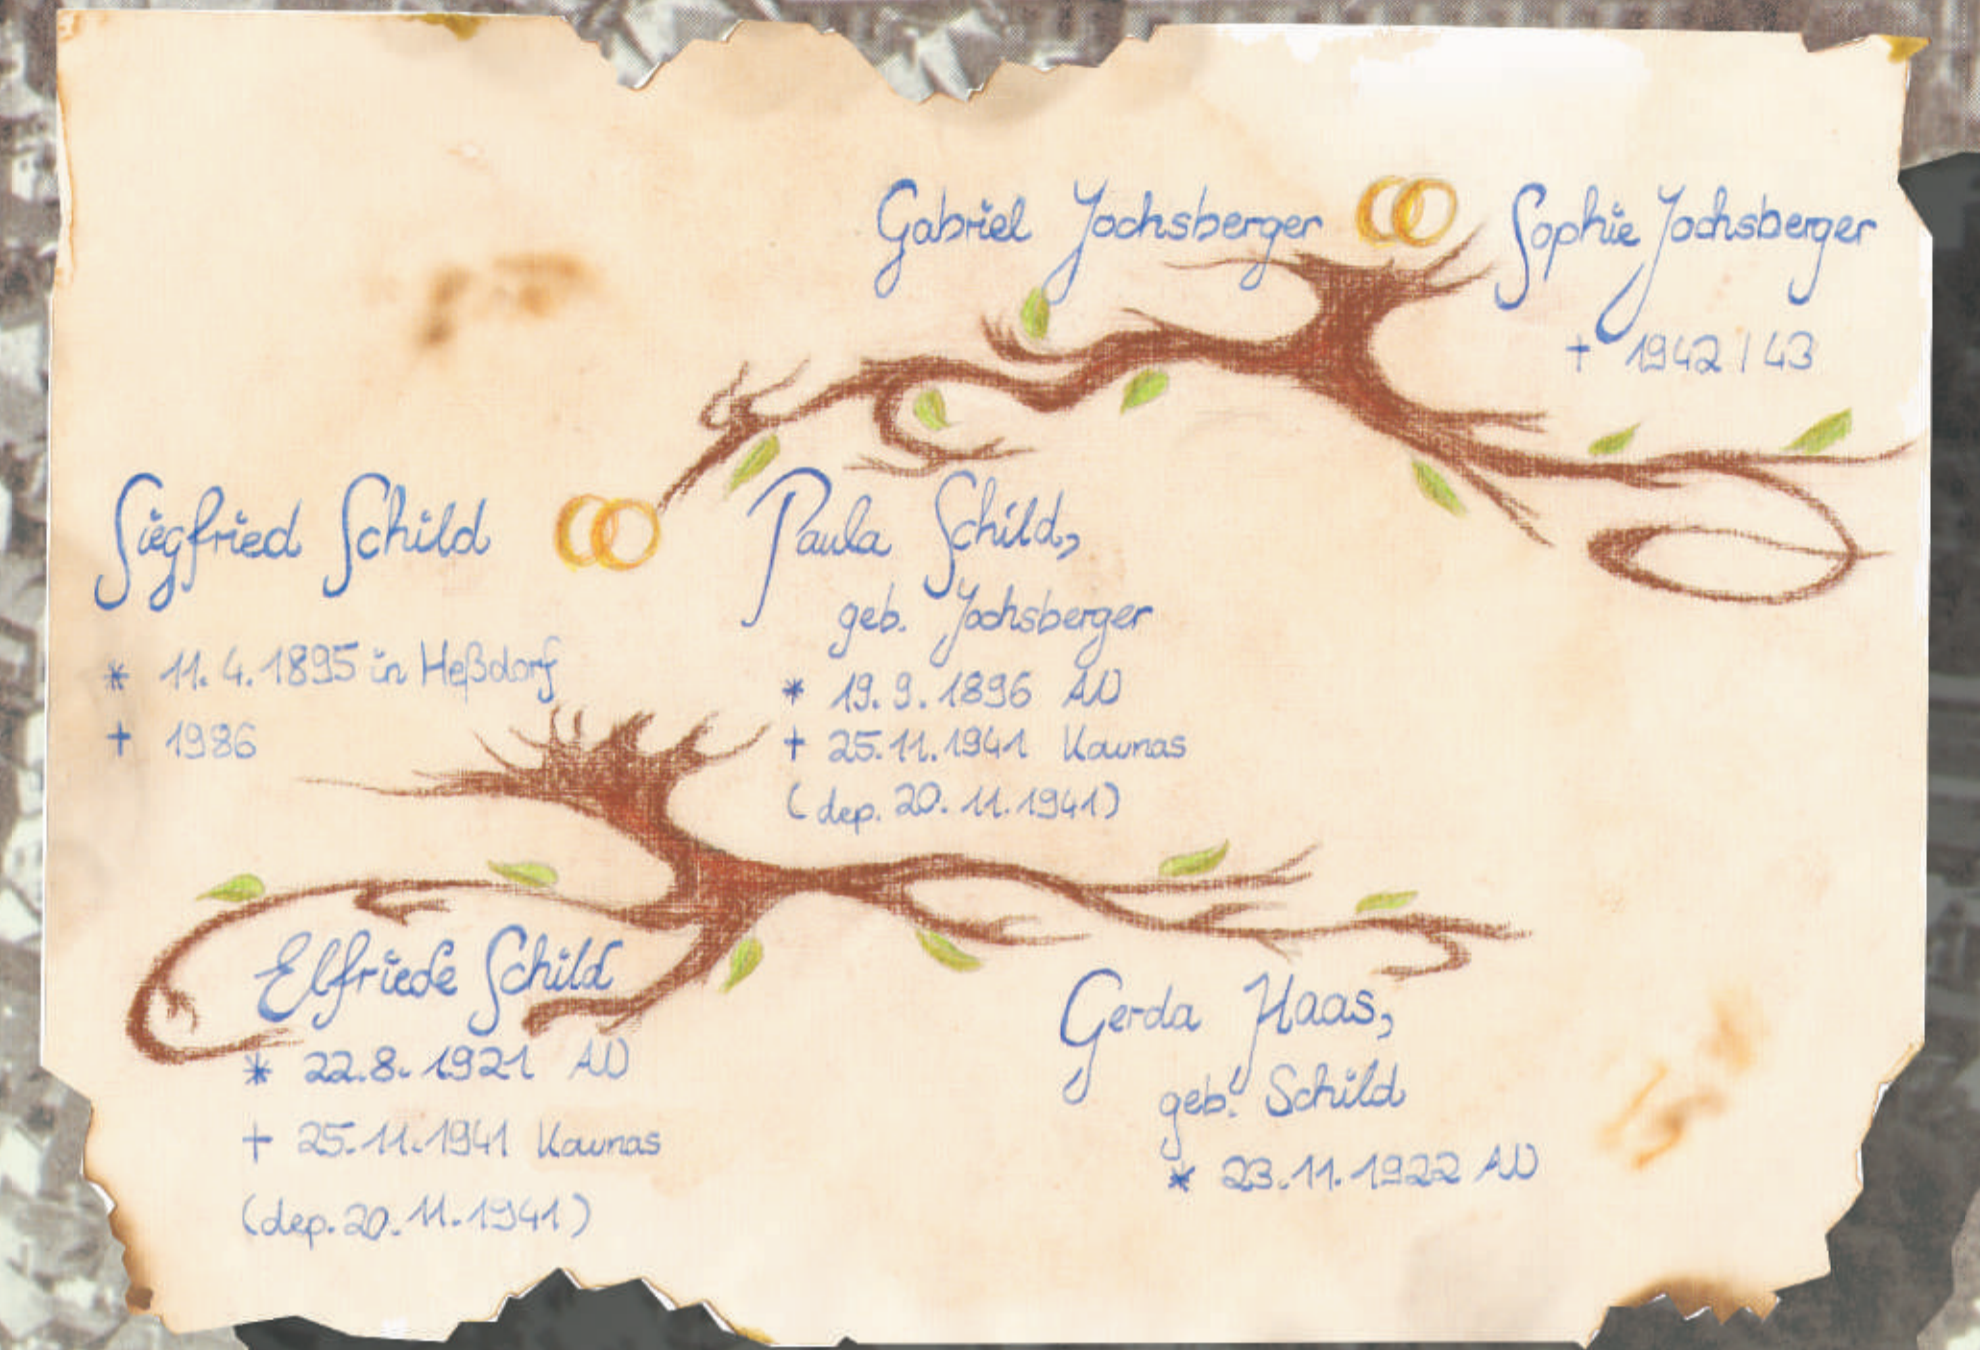 Gabriel Jochsberger
Sophie Jochsberger
+ 1942 / 43
Siegfried Schild
* 11. 4. 1895 in Heßdorf
+ 1986
Paula Schild,
geb. Jochsberger
* 19. 9. 1896 AU
+ 25. 11. 1941 Kaunas
(dep. 20. 11. 1941)
Elfriede Schild
* 22. 8. 1921 AU
+ 25. 11. 1941 Kaunas
(dep. 20. 11. 1941)
Gerda Haas,
geb. Schild
* 23. 11. 1922 AU